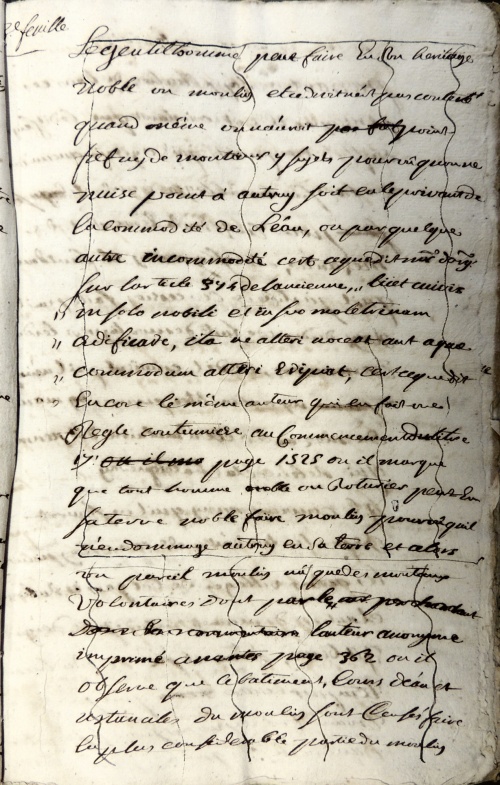 2e feuille
Le gentilhomme peut faire En son heritage
noble un moulin et
quand même on n'auroit point
sujets pourvû qu'on ne
nuise point à autruy soit en le privant de
la commodité de L'eau, ou par quelque
autre incommodité c'est ce que dit
sur l'article 374 de l'ancienne,, licet cuivis
,, in solo nobili et in suo moletrinam
,, ædificare, ita ne alteri noceat aut aquæ
,, commodum alteri Eripiat, c'est ce que dit
Encore le même auteur qui en fait une
Regle coutumiere au Commencement du titre
page 1525 ou il marque
que tout homme noble ou Roturier peut En
sa terre noble faire moulin pourvû qu'il
n'endommage autruy en sa terre et alors
un pareil moulin n'a que des mouteaux
volontaires dont
commentaire l'auteur anonyme
imprimé a nantes page 362 ou il
observe que le batiment, Cours d'eau et
ustanciles du moulin sont Censés faire
la plus considerable partie du moulin